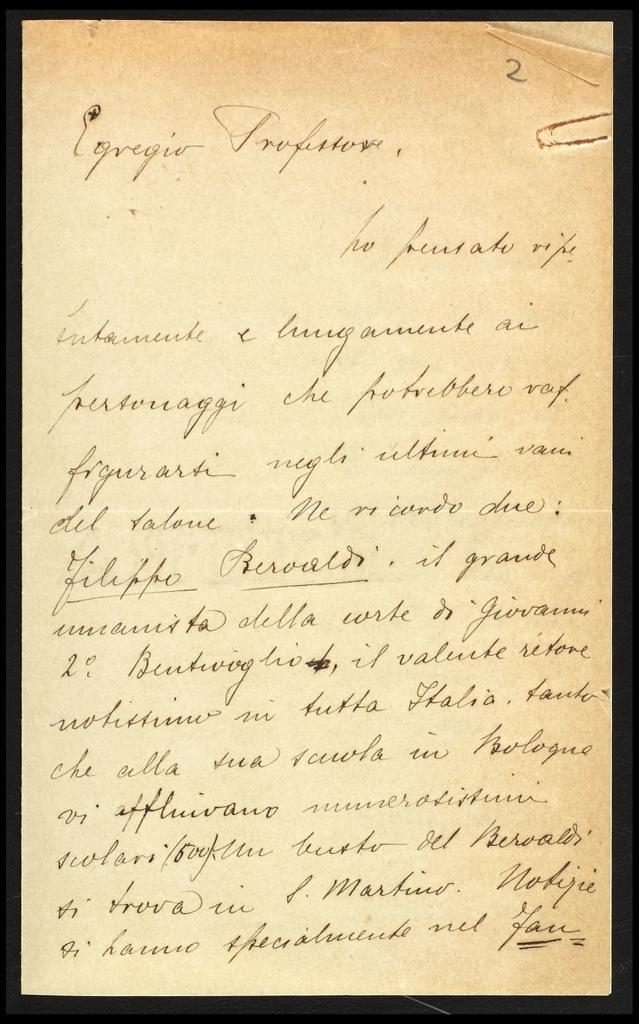 2
Egregio Professore,
ho pensato ripe
tutamente e lungamente ai
personaggi che potrebbero raf-
figurarsi negli ultimi vani
del salone. Ne ricordo due:
Filippo Beroaldi, il grande
umanista della corte di Giovanni
2º Bentivoglio, il valente retore
notissimo in tutta Italia, tanto
che alla sua scuola in Bologna
vi affluivano numerosissimi
scolari (600). Un busto del Beroaldi
si trova in S. Martino. Notizie
si hanno specialmente nel Fan=